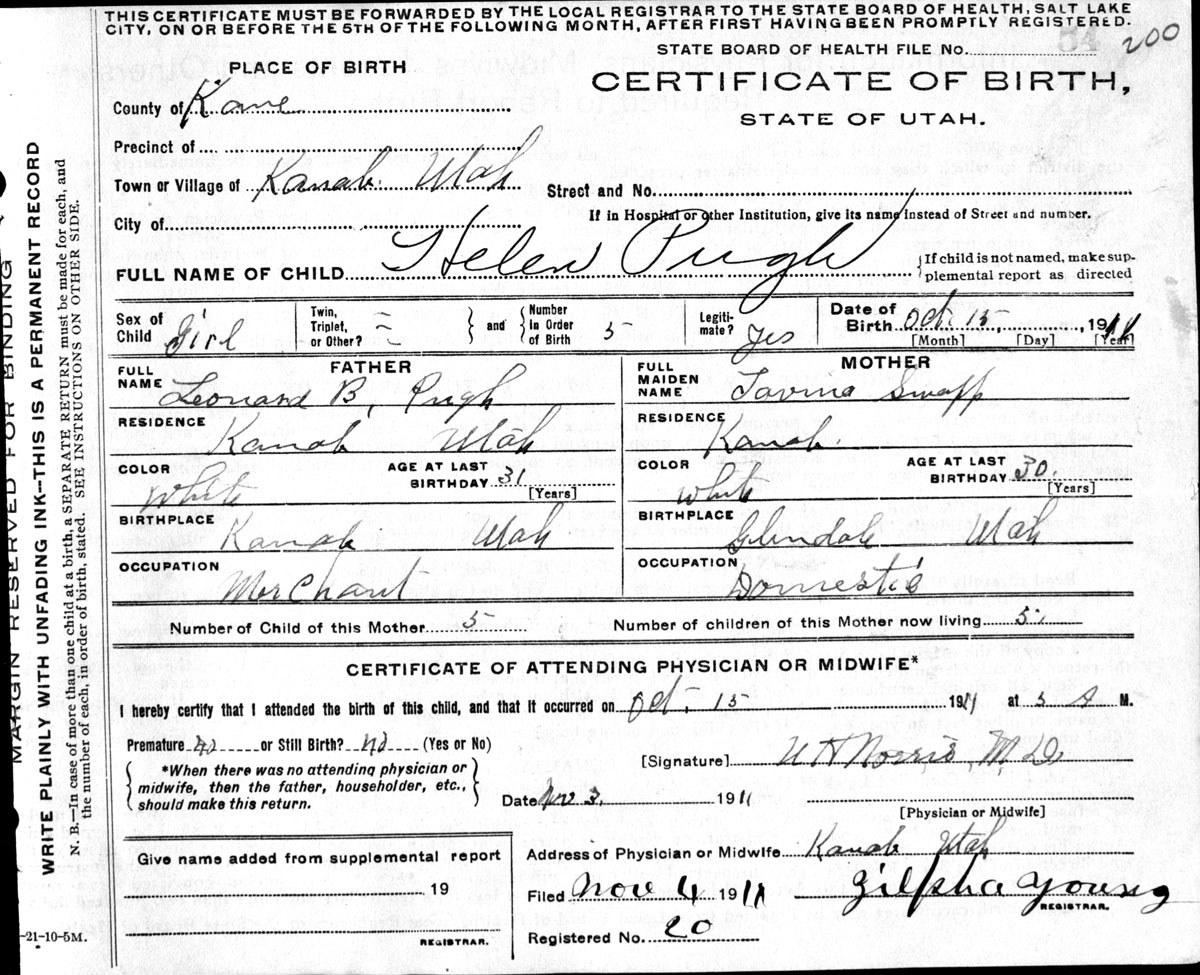 THIS CERTIFICATE MUST BE FORWARDED BY THE LOCAL REGISTRAR TO THE STATE BOARD OF HEALTH, SALT LAKE
CITY, ON OR BEFORE THE 5TH OF THE FOLLOWING MONTH, AFTER FIRST HAVING BEEN PROMPTLY REGISTERED.
54 200
STATE BOARD OF HEALTH FILE No.
PLACE OF BIRTH
CERTIFICATE OF BIRTH,
STATE OF UTAH.
County of Kane
Precinct of
Town or Village of Kanab Utah Street and No.
City of If in Hospital or other Institution, give its name instead of Street and number.
FULL NAME OF CHILD Helen Pugh {If child is not named, make sup-
plemental report as directed
Sex of Child Girl Twin, Triplet, or Other? and Number in Order of Birth 5 Legiti-mate? Yes Date of Birth Oct. 15, 1911
[Month] [Day] [Year]
FATHER MOTHER
FULL NAME Leonard B. Pugh FULL MAIDEN NAME Swapp
RESIDENCE Kanab Utah RESIDENCE Kanab
COLOR White AGE AT LAST BIRTHDAY 31 [Years] COLOR White AGE AT LAST BIRTHDAY 30. [Years]
BIRTHPLACE Kanab Utah BIRTHPLACE Glendale Utah
OCCUPATION Merchant OCCUPATION Domestic
Number of Child of this Mother 5 Number of children of this Mother now living 5
CERTIFICATE OF ATTENDING PHYSICIAN OR MIDWIFE*
I hereby certify that I attended the birth of this child, and that it occurred on Oct. 15 1911 at 5 A M.
Premature No or Still Birth? No (Yes or No)
[Signature] Norris M.D.
*When there was no attending physician or
midwife, then the father, householder, etc.,
should make this return.
Date Nov 3, 1911
[Physician or Midwife]
Give name added from supplemental report
19
REGISTRAR.
Address of Physician or Midwife Kanab Utah
Filed Nov 4 1911 Zilpha Young
REGISTRAR.
Registered No. 20
-21-10-5M.
MARGIN RESERVED FOR BINDING
WRITE PLAINLY WITH UNFADING INK—THIS IS A PERMANENT RECORD
N. B.—In case of more than one child at a birth, a SEPARATE RETURN must be made for each, and
the number of each, in order of birth, stated. SEE INSTRUCTIONS ON OTHER SIDE.